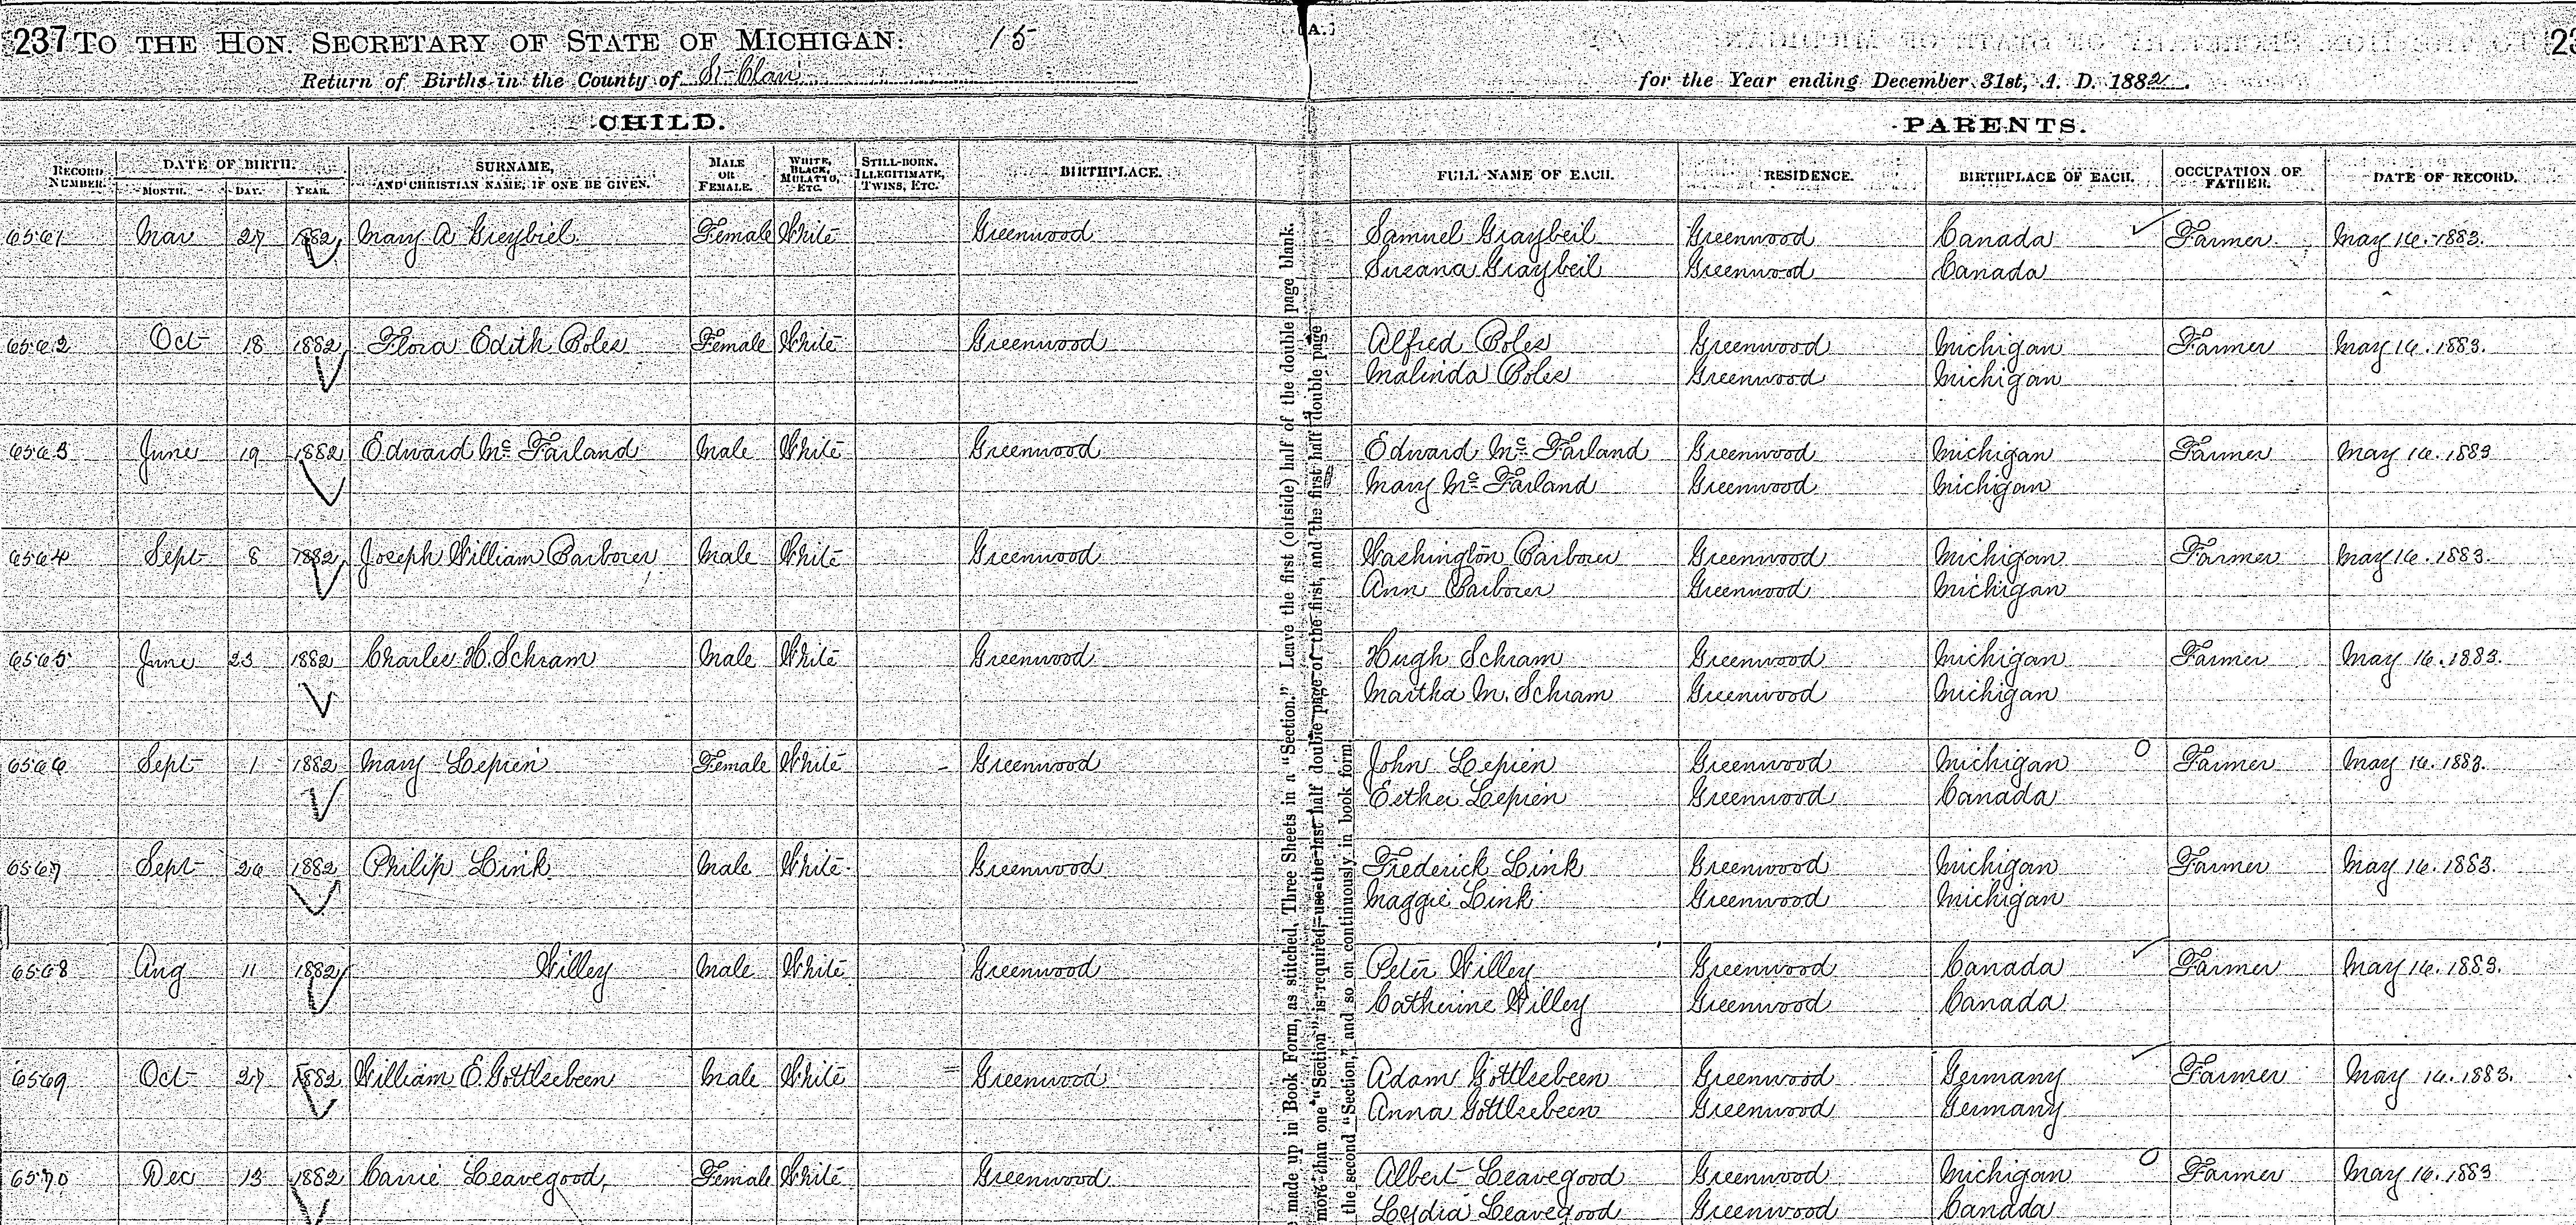 237 TO THE HON. SECRETARY OF STATE OF MICHIGAN: 15 (A.) 23
Return of Births in the County of St Clair for the Year ending December 31st, A. D. 1882.
CHILD. PARENTS.
RECORD NUMBER. DATE OF BIRTH. MONTH. DAY. YEAR. SURNAME, AND CHRISTIAN NAME, IF ONE BE GIVEN. MALE OR FEMALE. WHITE, BLACK, MULATTO, ETC. STILL-BORN, ILLEGITIMATE, TWINS, ETC. BIRTHPLACE. FULL NAME OF EACH. RESIDENCE. BIRTHPLACE OF EACH. OCCUPATION OF FATHER. DATE OF RECORD.
6561 Mar 27 1882 Mary A Greybiel Female White Greenwood Samuel Graybeil Greenwood Canada Farmer May 16. 1883.
Susana Graybeil Greenwood Canada
6562 Oct 18 1882 Flora Edith Boles Female White Greenwood Alfred Boles Greenwood Michigan Farmer May 16. 1883.
Malinda Boles Greenwood Michigan
6563 June 19 1882 Edward Mc Farland Male White Greenwood Edward Mc Farland Greenwood Michigan Farmer May 16. 1883
Mary Mc Farland Greenwood Michigan
6564 Sept 8 1882 Joseph William Barbour Male White Greenwood Washington Barbour Greenwood Michigan Farmer May 16. 1883.
Ann Barbour Greenwood Michigan
6565 June 23 1882 Charles H. Schram Male White Greenwood Hugh Schram Greenwood Michigan Farmer May 16. 1883.
Martha M. Schram Greenwood Michigan
6566 Sept 1 1882 Mary Lepien Female White Greenwood John Lepien Greenwood Michigan Farmer May 16. 1883.
Esther Lepien Greenwood Canada
6567 Sept 26 1882 Philip Link Male White Greenwood Frederick Link Greenwood Michigan Farmer May 16. 1883.
Maggie Link Greenwood Michigan
6568 Aug 11 1882 Willey Male White Greenwood Peter Willey Greenwood Canada Farmer May 16. 1883.
Catherine Willey Greenwood Canada
6569 Oct 27 1882 William E. Gottlsebeen Male White Greenwood Adam Gottlsebeen Greenwood Germany Farmer May 16. 1883.
Anna Gottlsebeen Greenwood Germany
6570 Dec 13 1882 Carrie Leavegood Female White Greenwood Albert Leavegood Greenwood Michigan Farmer May 16. 1883
Lydia Leavegood Greenwood Canada
made up in Book Form, as stitched, Three Sheets in a "Section." Leave the first (outside) half of the double page blank.
more than one "Section" is required, use the last half double page of the first, and the first half double page
the second "Section," and so on continuously in book form.